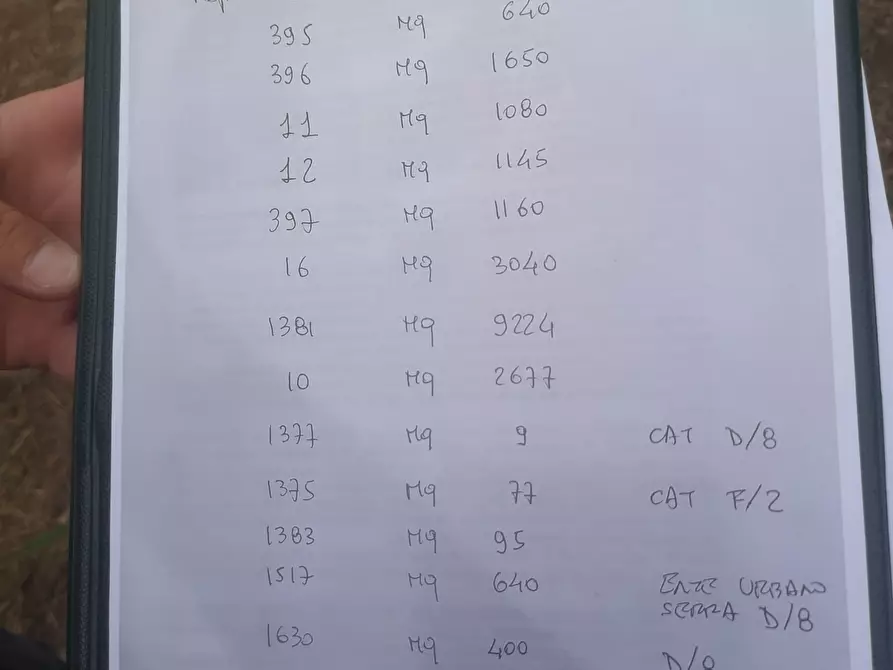 395 Mq 640
396 Mq 1650
11 Mq 1080
12 Mq 1145
397 Mq 1160
16 Mq 3040
1381 Mq 9224
10 Mq 2677
1377 Mq 9 CAT D/8
1375 Mq 77 CAT F/2
1383 Mq 95
1517 Mq 640 ENTE URBANO
SERRA D/8
1630 Mq 400